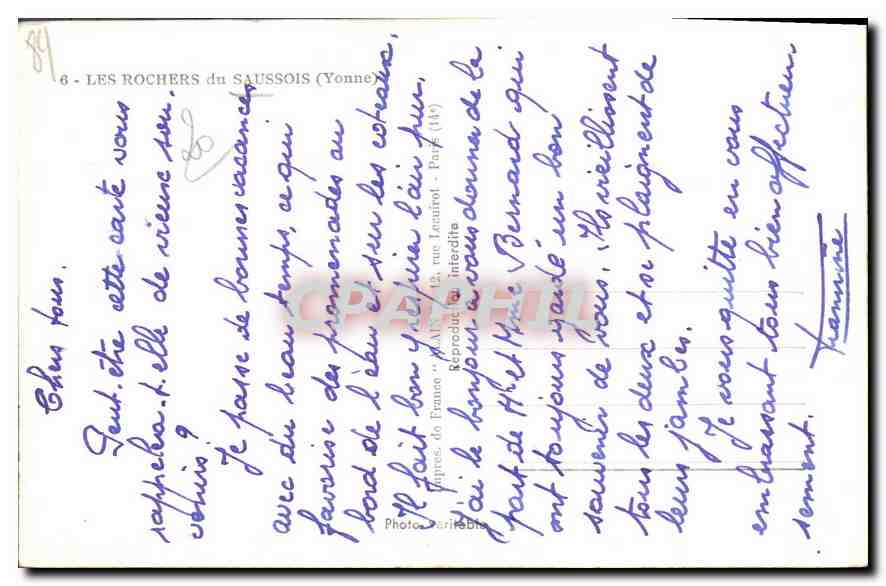 6 - LES ROCHERS du SAUSSOIS (Yonne)
89
Chers tous.
Peut-être cette carte vous
rappelera-t-elle de vieux sou-
venirs ?
Je passe de bonnes vacances
avec du beau temps, ce qui
favorise des promenades au
bord de l'eau et sur les coteaux.
Il fait bon respirer l'air pur.
J'ai le bonjour à vous donner de la
part de Mr et Mme Bernard qui
ont toujours gardé un bon
souvenir de vous. Ils vieillissent
tous les deux et se plaignent de
leurs jambes.
Je vous quitte en vous
embrassant tous bien affectueu-
sement.
Jeannine
Impres. de France "ALAIN" 12, rue Lecuirot - Paris (14e)
Reproduction interdite
Photo véritable
CPAPHIL